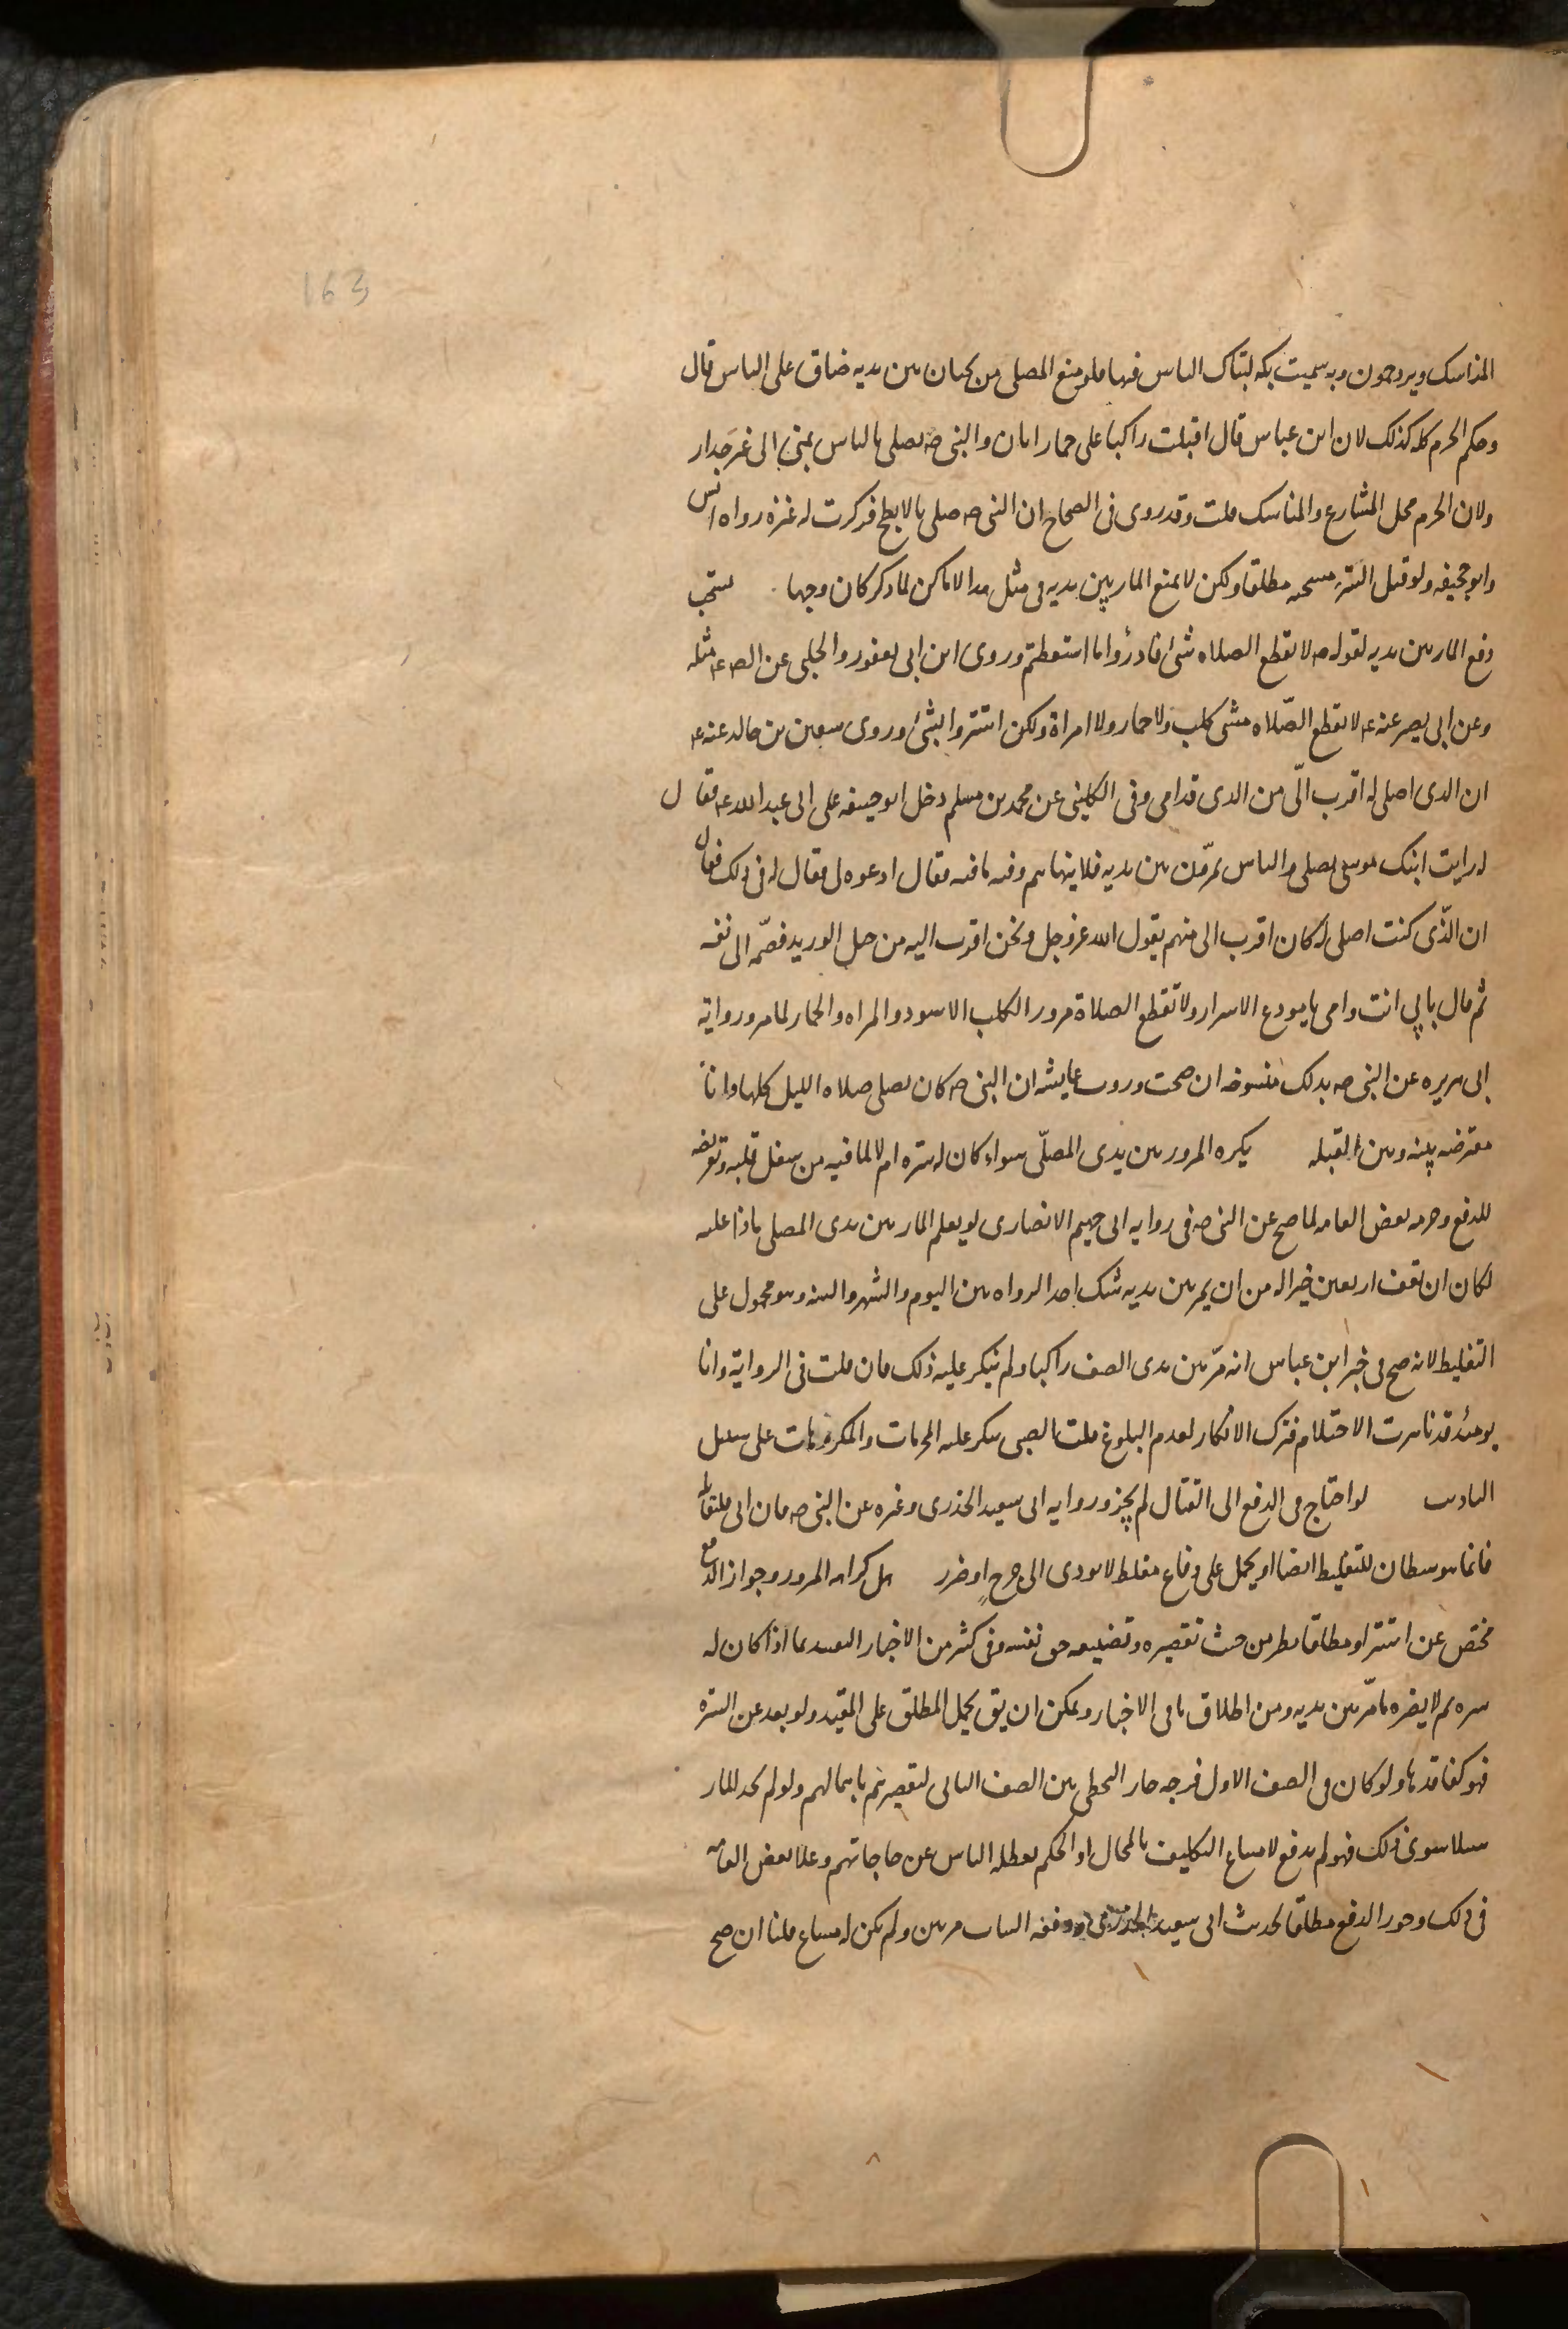 163
المناسك ويزدحمون وبه سميت بكه لتباك الناس فيها فلو منع المصلى من يجتاز بين يديه ضاق على الناس قال
وحكم الحرم كله كذلك لان ابن عباس قال اقبلت راكبا على حمار اتان والنبى صه يصلى بالناس بمنى الى غير جدار
ولان الحرم محل المشاعر والمناسك قلت وقد روى فى الصحاح ان النبى صه صلى بالابطح فركزت له عنزه رواه انس
وابو جحيفه ولو قيل السترة مستحبه مطلقا ولكن لا يمنع المار بين يديه فى مثل هذه الاماكن لما ذكر كان وجها يستحب
دفع المار بين يديه لقوله صه لا يقطع الصلاه شئ فادرؤا ما استعطتم وروى ابن ابى يعفور والحلبى عن الص ع مثله
وعن ابى بصير عنه ع لا يقطع الصّلاه مشى كلب ولا حمار ولا امراة ولكن استتروا بشئ وروى سفين بن خالد عنه ع
ان الذى اصلى له اقرب الىّ من الذى قدامى وفى الكلينى عن محمد بن مسلم دخل ابو حنيفه على ابى عبد الله ع فقال
له رايت ابنك موسى يصلى والناس يمرّون بين يديه فلا ينهاهم وفيه ما فيه فقال ادعوه لى فقال له فى ذلك فقال
ان الّذى كنت اصلى له كان اقرب الى منهم يقول الله عز وجل ونحن اقرب اليه من حبل الوريد فضمّه الى نفسه
ثم قال بابى انت وامى يا مودع الاسرار ولا تقطع الصلاة مرور الكلب الاسود والمراه والحمار لما مر ورواية
ابى هريره عن النبى صه بذلك منسوخه ان صحت وروت عايشه ان النبى صه كان يصلى صلاه الليل كلها وانا
معترضه بينه وبين القبله يكره المرور بين يدى المصلّى سواء كان له ستره ام لا لما فيه من شغل قلبه وتعريضه
للدفع وحرمه بعض العامه لما صح عن النبى صه فى روايه ابى جهيم الانصارى لو يعلم المار بين يدى المصلى ماذا عليه
لكان ان يقف اربعين خيرا له من ان يمر بين يديه شك احد الرواه بين اليوم والشهر والسنه وهو محمول على
التغليظ لانه صح فى خبر ابن عباس انه مرّ بين يدى الصف راكبا ولم ينكر عليه ذلك فان قلت فى الرواية وانا
يومئذ قد ناهزت الاحتلام فترك الانكار لعدم البلوغ قلت الصبى ينكر عليه المحرمات والمكروهات على سبيل
التاديب لو احتاج فى الدفع الى القتال لم يجز وروايه ابى سعيد الخدرى وغيره عن النبى صه فان ابى فليقاتله
فانما هو شيطان للتغليظ ايضا او يحمل على دفاع مغلظ لا يودى الى جرحٍ او ضرر هل كراهه المرور وجواز الدفع
مختص بمن استتر او مطلقا نظر من حيث تقصيره وتضييعه حق نفسه وفى كثير من الاخبار التقييد بما اذا كان له
ستره ثم لا يضره ما مرّ بين يديه ومن اطلاق باقى الاخبار ويمكن ان يق يحمل المطلق على المقيد ولو بعد عن السترة
فهو كفاقدها ولو كان فى الصف الاول فرجه جاز التخطى بين الصف الثانى لتقصيرهم باهمالهم ولو لم يجد المار
سبيلا سوى ذلك فهو لم يدفع لامتناع التكليف بالمحال او الحكم بعطله الناس عن حاجاتهم وغلا بعض العامه
فى ذلك وجوز الدفع مطلقا لحديث ابى سعيد الخدرى ودفعه الشاب مرتين ولم يكن له مساغ قلنا ان صح